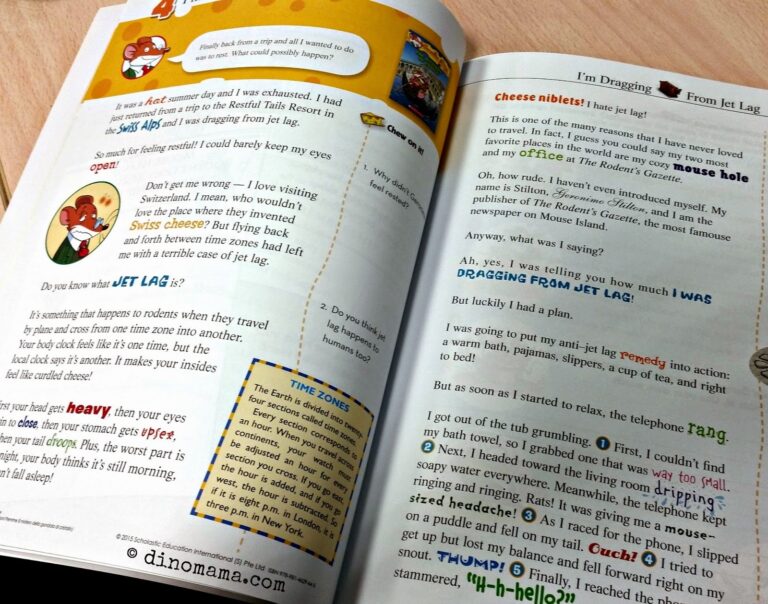 4
Finally back from a trip and all I wanted to do
was to rest. What could possibly happen?
It was a hot summer day and I was exhausted. I had
just returned from a trip to the Restful Tails Resort in
the Swiss Alps and I was dragging from jet lag.
So much for feeling restful! I could barely keep my eyes
open!
Don't get me wrong — I love visiting
Switzerland. I mean, who wouldn't
love the place where they invented
Swiss cheese? But flying back
and forth between time zones had left
me with a terrible case of jet lag.
Do you know what JET LAG is?
It's something that happens to rodents when they travel
by plane and cross from one time zone into another.
Your body clock feels like it's one time, but the
local clock says it's another. It makes your insides
feel like curdled cheese!
First your head gets heavy, then your eyes
to close, then your stomach gets upset,
then your tail droops. Plus, the worst part is
night, your body thinks it's still morning,
can't fall asleep!
Chew on it!
1. Why didn't
feel rested?
2. Do you think jet
lag happens to
humans too?
TIME ZONES
The Earth is divided into twenty-
four sections called time zones.
Every section corresponds to
an hour. When you travel across
continents, your watch must
be adjusted an hour for every
section you cross. If you go east,
the hour is added, and if you go
west, the hour is subtracted. So
if it is eight p.m. in London, it is
three p.m. in New York.
© 2015 Scholastic Education International (S) Pte Ltd
© dinomama.com
I'm Dragging From Jet Lag
Cheese niblets! I hate jet lag!
This is one of the many reasons that I have never loved
to travel. In fact, I guess you could say my two most
favorite places in the world are my cozy mouse hole
and my office at The Rodent's Gazette.
Oh, how rude. I haven't even introduced myself. My
name is Stilton, Geronimo Stilton, and I am the
publisher of The Rodent's Gazette, the most famouse
newspaper on Mouse Island.
Anyway, what was I saying?
Ah, yes, I was telling you how much I WAS
DRAGGING FROM JET LAG!
But luckily I had a plan.
I was going to put my anti–jet lag remedy into action:
a warm bath, pajamas, slippers, a cup of tea, and right
to bed!
But as soon as I started to relax, the telephone rang.
I got out of the tub grumbling. 1 First, I couldn't find
my bath towel, so I grabbed one that was way too small.
2 Next, I headed toward the living room dripping
soapy water everywhere. Meanwhile, the telephone kept
ringing and ringing. Rats! It was giving me a mouse-
sized headache! 3 As I raced for the phone, I slipped
on a puddle and fell on my tail. Ouch! 4 I tried to
get up but lost my balance and fell forward right on my
snout. THUMP! 5 Finally, I reached the
stammered, "H-h-hello?"